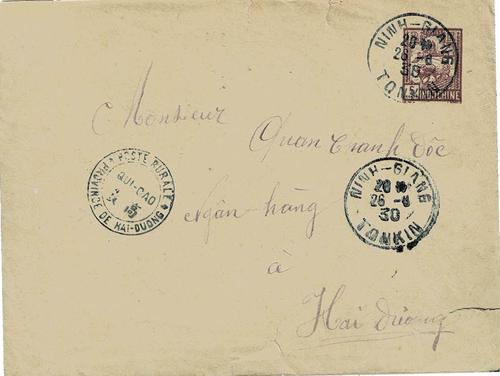 NINH-GIANG
26 -8
30
TONKIN
INDOCHINE
Monsieur
Quan Tranh Đốc
POSTE RURALE
QUI-CAO
PROVINCE DE HAI-DUONG
NINH-GIANG
26 -8
30
TONKIN
Ngân-hàng
à
Hải Dương